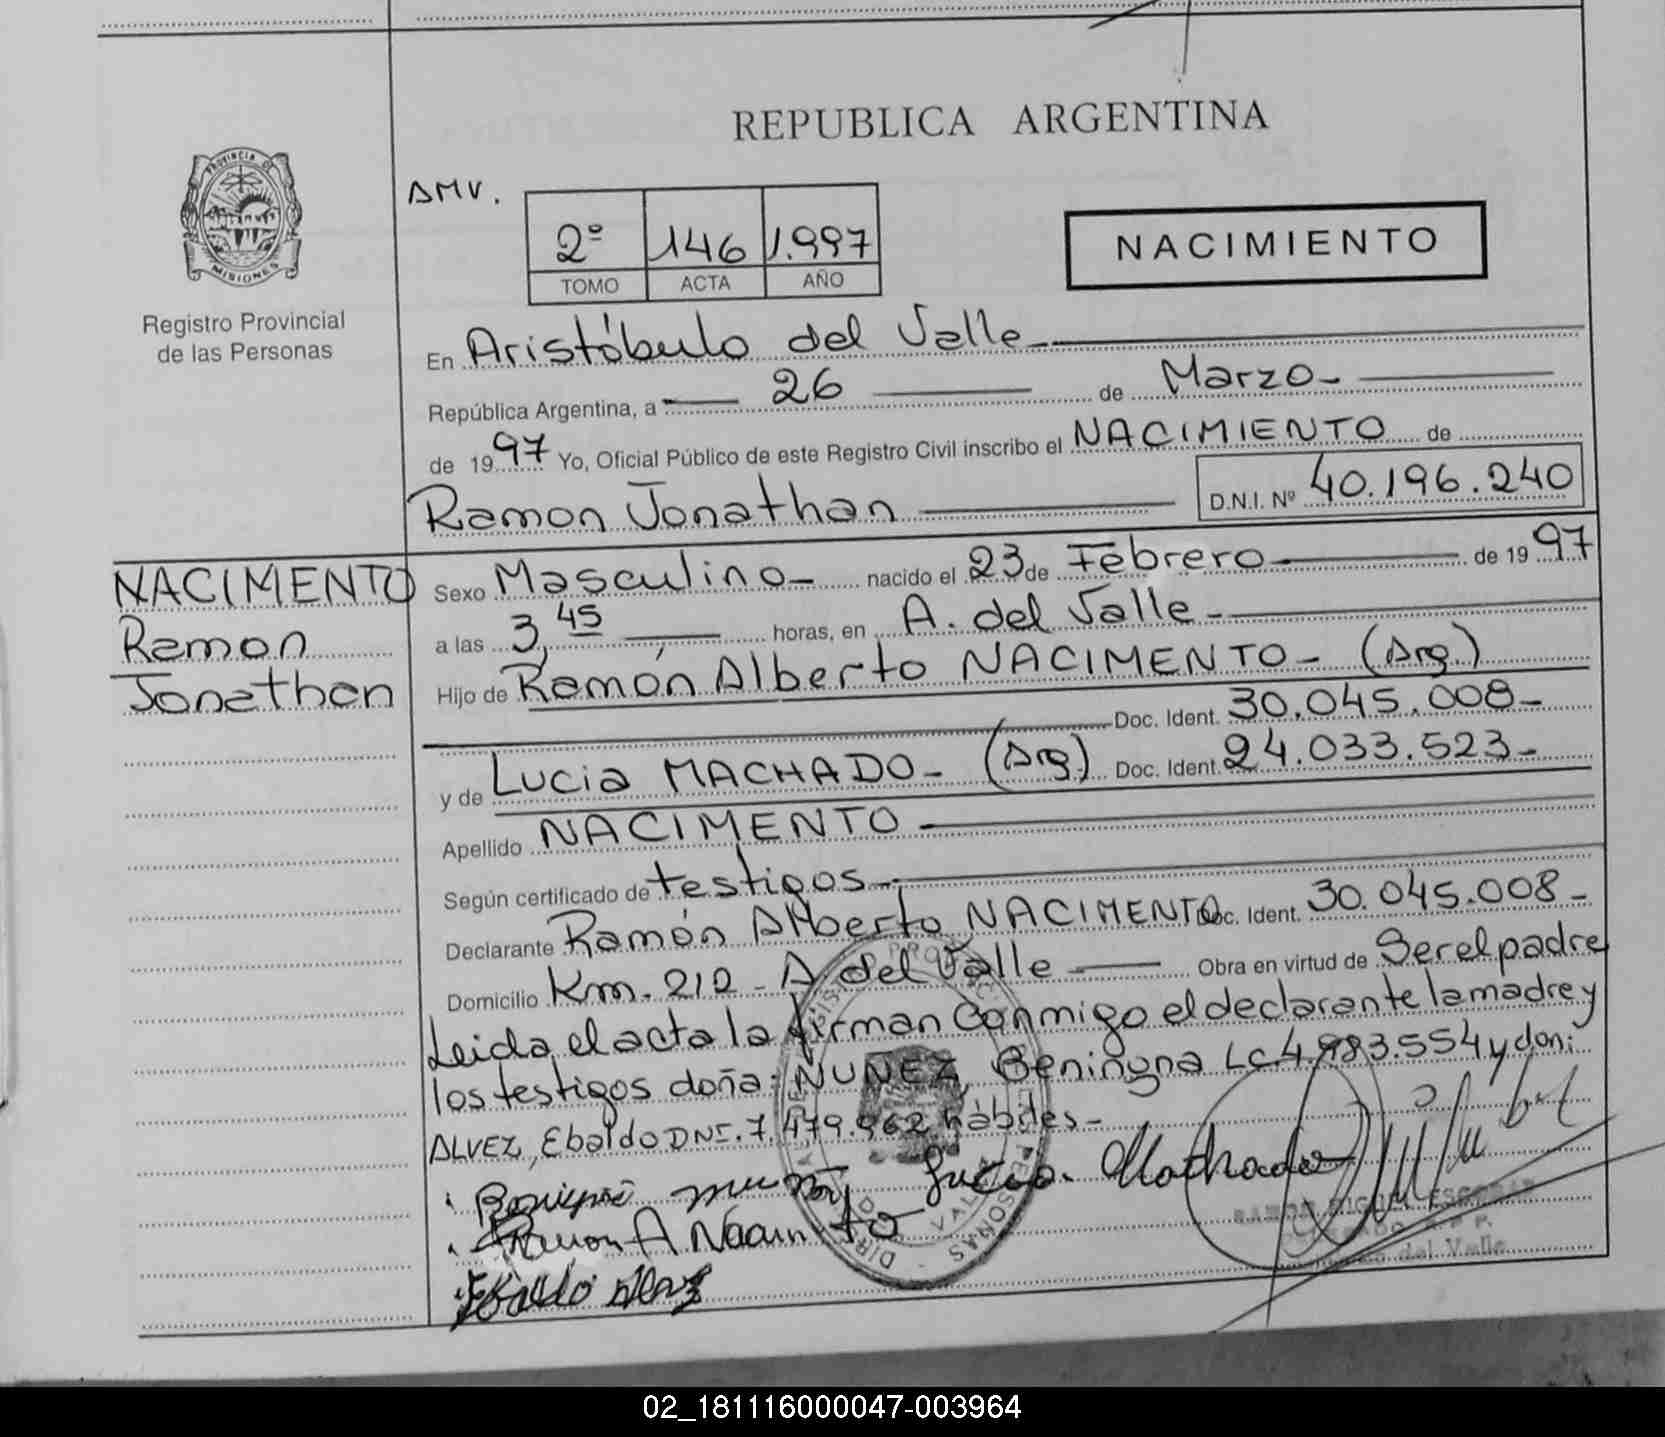 REPUBLICA ARGENTINA
PROVINCIA DE
MISIONES
Registro Provincial
de las Personas
AMV.
2º 146 1.997
TOMO ACTA AÑO
NACIMIENTO
En Aristóbulo del Valle
República Argentina, a 26 de Marzo
de 1997 Yo, Oficial Público de este Registro Civil inscribo el NACIMIENTO de
Ramon Jonathan D.N.I. Nº 40.196.240
NACIMENTO
Ramon
Jonathan
Sexo Masculino nacido el 23 de Febrero de 1997
a las 3,45 horas, en A. del Valle
Hijo de Ramón Alberto NACIMENTO (Arg.)
Doc. Ident. 30.045.008
y de Lucia MACHADO (Arg) Doc. Ident. 24.033.523
Apellido NACIMENTO
Según certificado de testigos
Declarante Ramón Alberto NACIMENTO Doc. Ident. 30.045.008
Domicilio Km. 212 - A. del Valle Obra en virtud de Ser el padre
Leida el acta la firman conmigo el declarante la madre y
los testigos doña: NUÑEZ, Beningna LC 4.983.554 y don:
ALVEZ, Ebaldo DNI. 7.479.962 hábiles
Lucia Machado
Ramon A Nacimento
02_181116000047-003964